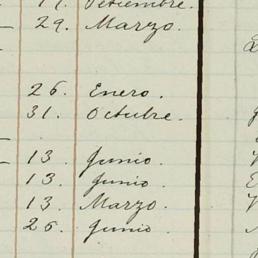 Setiembre.
29. Marzo.
26. Enero.
31. Octubre.
13. Junio.
13. Junio.
13. Marzo.
26. Junio